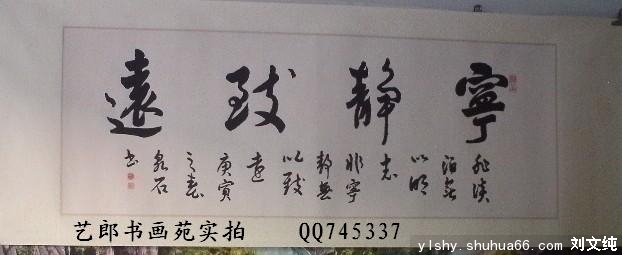 寧静致遠
非淡
泊無
以明
志
非寧
静無
以致
遠
庚寅
之春
泉石
书
艺郎书画苑实拍 QQ745337
ylshy.shuhua66.com 刘文纯